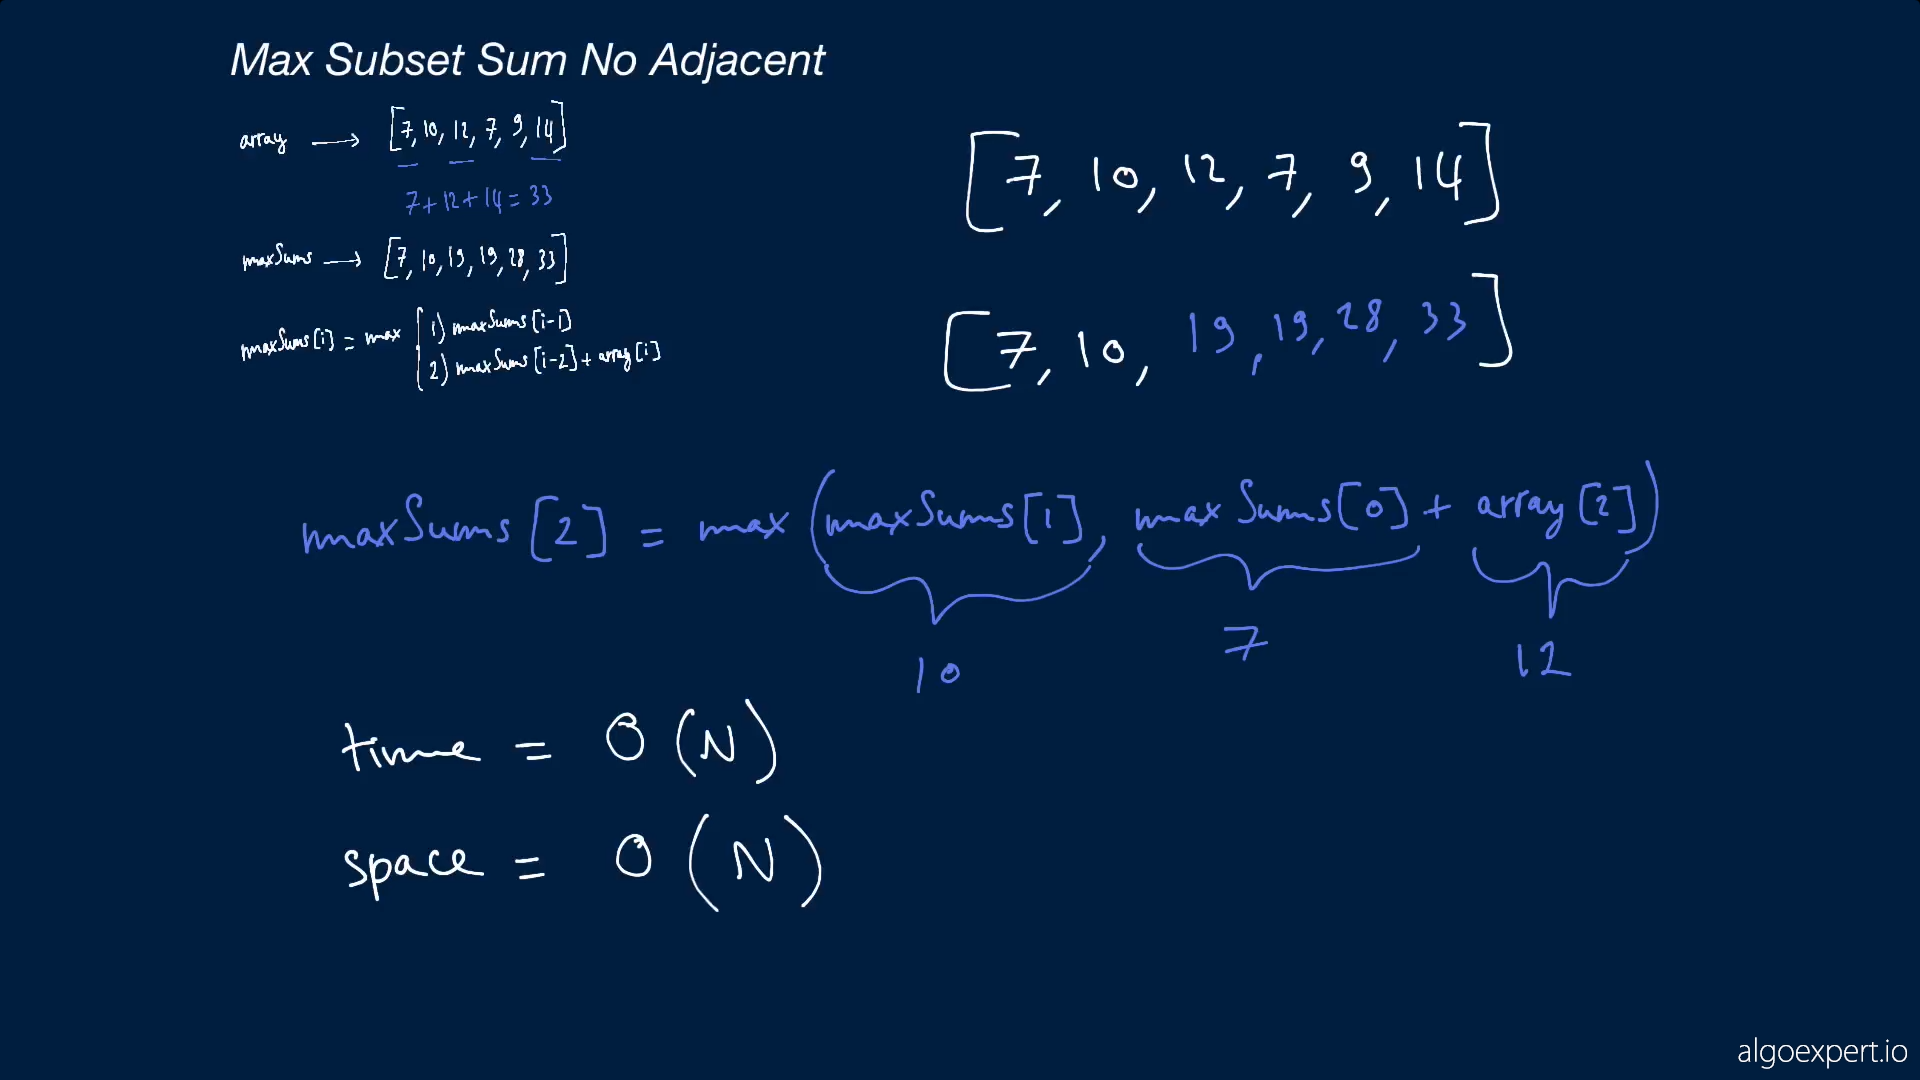 Max Subset Sum No Adjacent
array → [7, 10, 12, 7, 9, 14]
7+12+14=33
maxSums → [7, 10, 19, 19, 28, 33]
maxSums[i] = max
1) maxSums[i-1]
2) maxSums[i-2] + array[i]
[7, 10, 12, 7, 9, 14]
[7, 10, 19, 19, 28, 33]
maxSums[2] = max(maxSums[1], maxSums[0] + array[2])
10 7 12
time = O(N)
space = O(N)
algoexpert.io